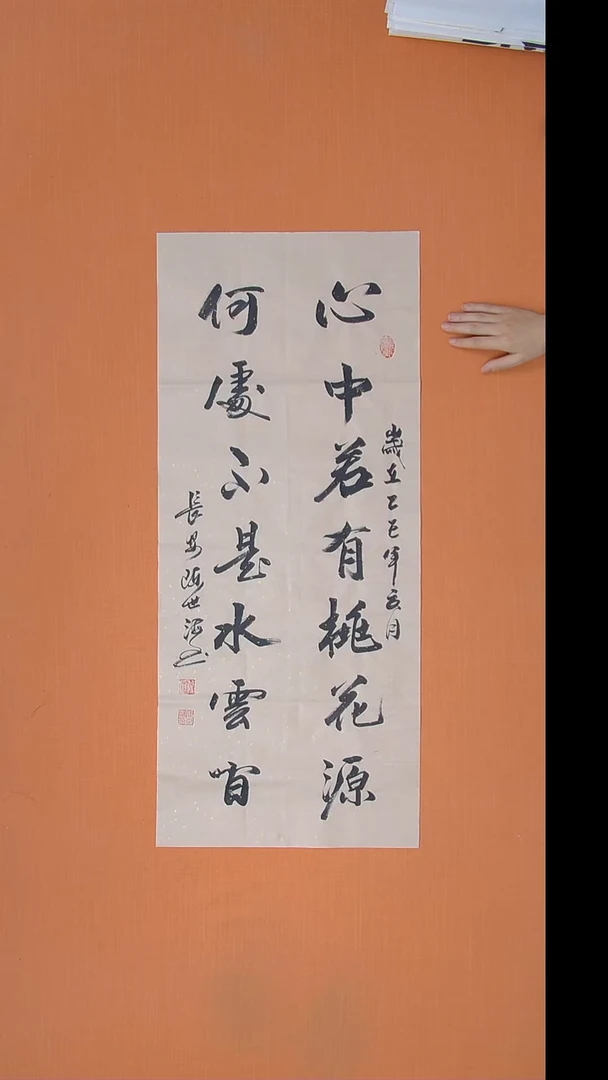 歲在乙巳年月
心中若有桃花源
何處不是水雲間
長安世書